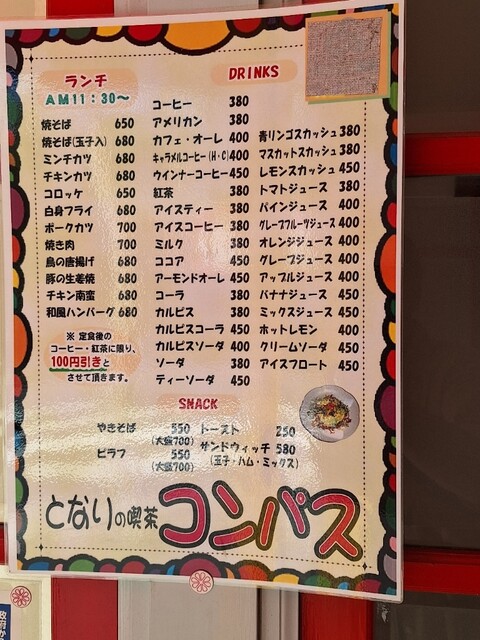 ランチ
AM11:30〜
焼そば 650
焼そば(玉子入) 680
ミンチカツ 680
チキンカツ 680
コロッケ 650
白身フライ 680
ポークカツ 700
焼き肉 700
鳥の唐揚げ 680
豚の生姜焼 680
チキン南蛮 680
和風ハンバーグ 680
※ 定食後の
コーヒー・紅茶に限り、
100円引きと
させて頂きます。
DRINKS
コーヒー 380
アメリカン 380
カフェ・オーレ 400
キャラメルコーヒー(H・C) 400
ウインナーコーヒー 450
紅茶 380
アイスティー 380
アイスコーヒー 380
ミルク 380
ココア 450
アーモンドオーレ 450
コーラ 380
カルピス 380
カルピスコーラ 450
カルピスソーダ 400
ソーダ 380
ティーソーダ 450
青リンゴスカッシュ 380
マスカットスカッシュ 380
レモンスカッシュ 450
トマトジュース 380
パインジュース 400
グレープフルーツジュース 400
オレンジジュース 400
グレープジュース 400
アップルジュース 400
バナナジュース 450
ミックスジュース 450
ホットレモン 400
クリームソーダ 450
アイスフロート 450
SNACK
やきそば 550
(大盛700)
ピラフ 550
(大盛700)
トースト 250
サンドウィッチ 580
(玉子・ハム・ミックス)
となりの喫茶 コンパス